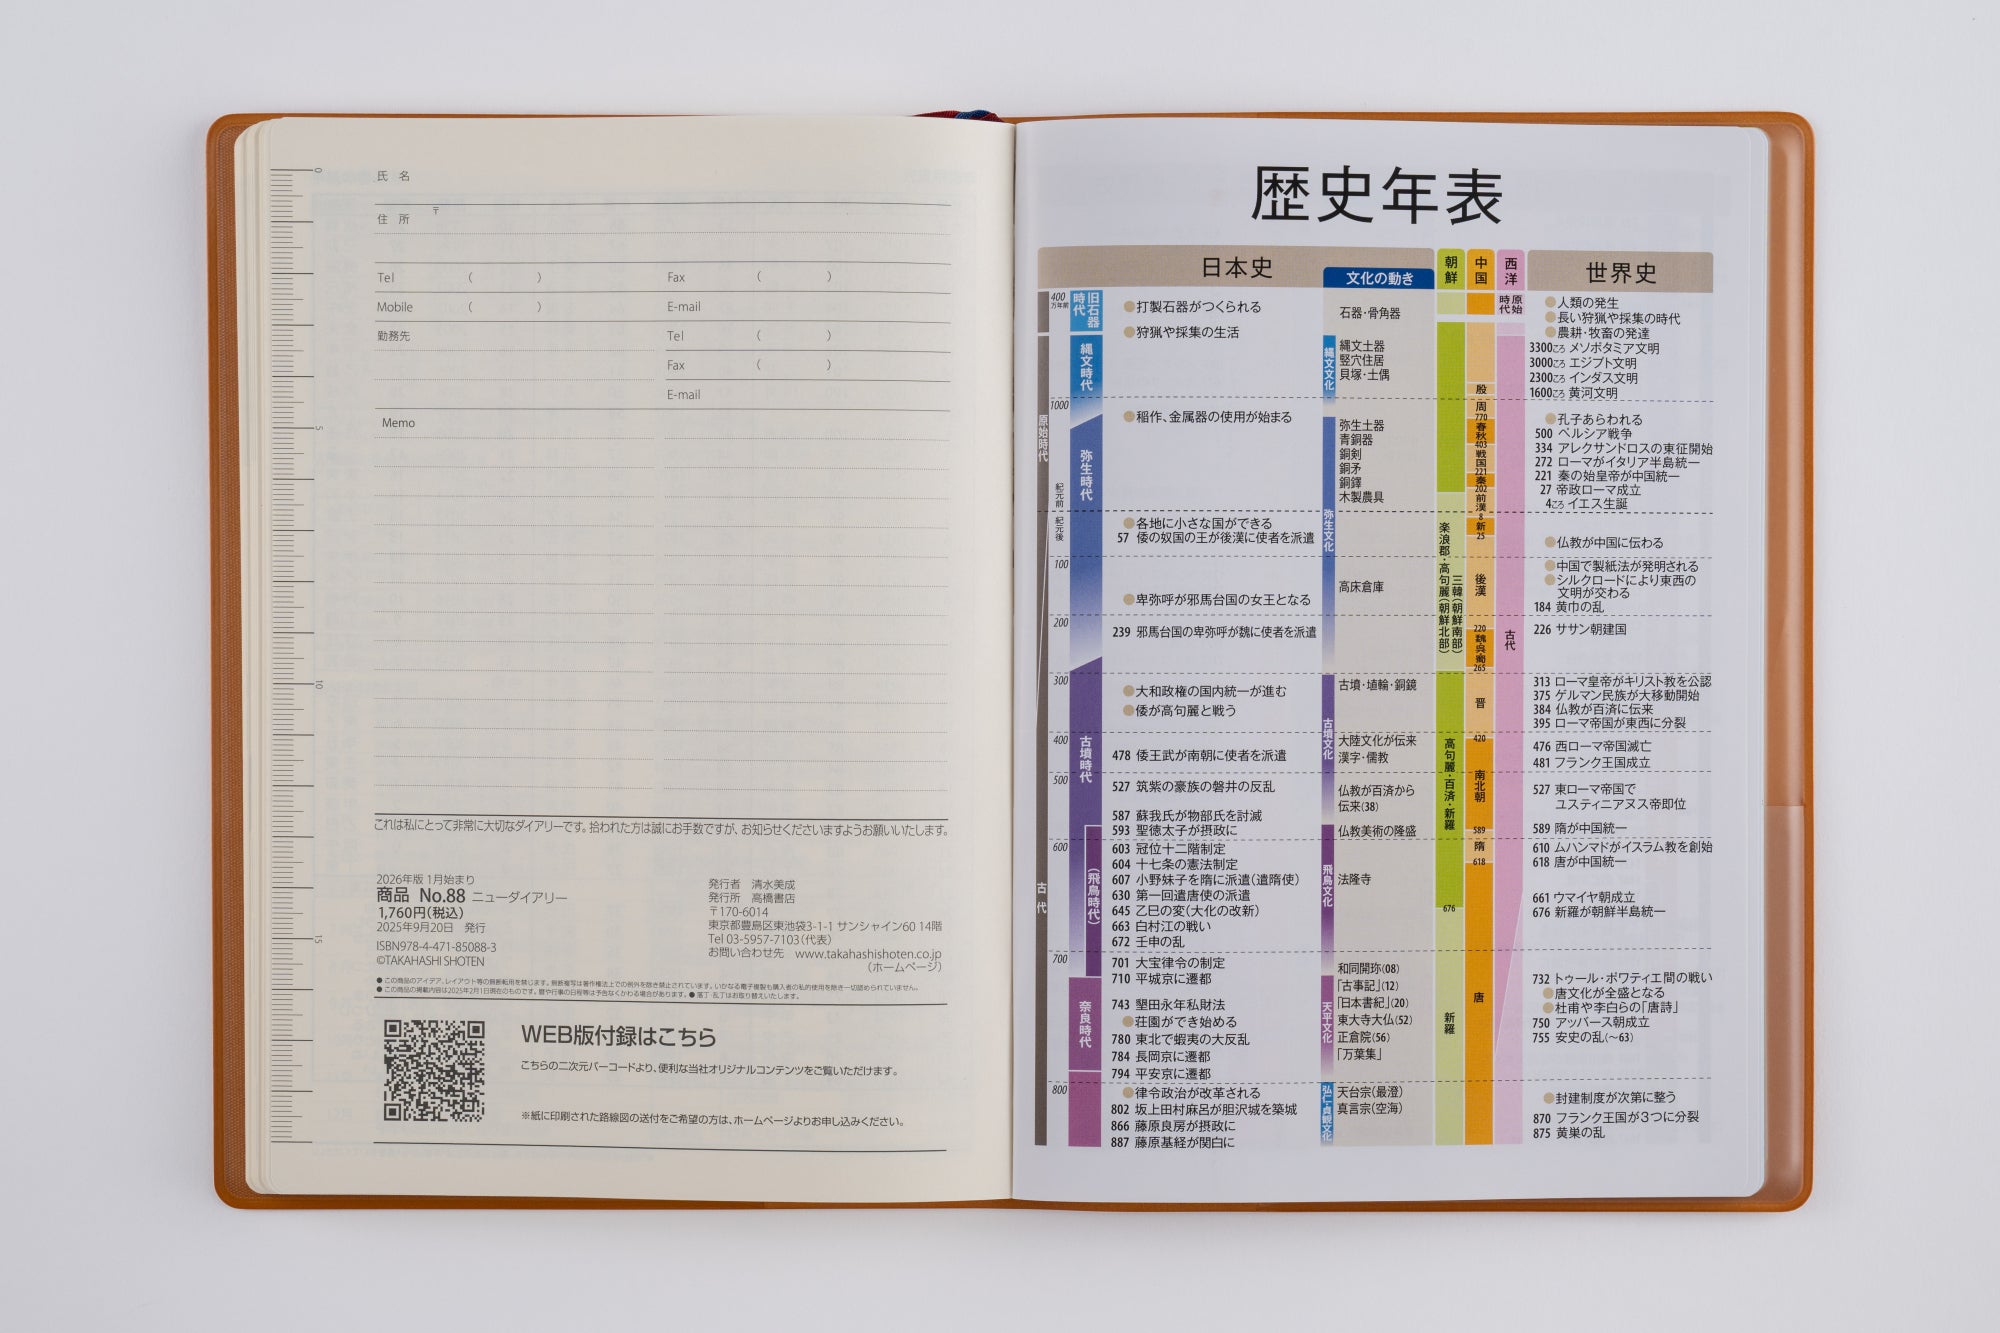 氏 名
住 所 〒
Tel ( ) Fax ( )
Mobile ( ) E-mail
勤務先 Tel ( )
Fax ( )
E-mail
Memo
0
5
10
15
これは私にとって非常に大切なダイアリーです。拾われた方は誠にお手数ですが、お知らせくださいますようお願いいたします。
2026年版 1月始まり
商品 No.88 ニューダイアリー
1,760円(税込)
2025年9月20日 発行
ISBN978-4-471-85088-3
©TAKAHASHI SHOTEN
発行者 清水美成
発行所 高橋書店
〒170-6014
東京都豊島区東池袋3-1-1 サンシャイン60 14階
Tel 03-5957-7103(代表)
お問い合わせ先 www.takahashishoten.co.jp
(ホームページ)
●この商品のアイデア、レイアウト等の無断転用を禁じます。無断複写は著作権法上での例外を除き禁止されています。いかなる電子複製も購入者の私的使用を除き一切認められていません。
●この商品の掲載内容は2025年2月1日現在のものです。暦や行事の日程等は予告なくかわる場合があります。●落丁・乱丁はお取り替えいたします。
WEB版付録はこちら
こちらの二次元バーコードより、便利な当社オリジナルコンテンツをご覧いただけます。
※紙に印刷された路線図の送付をご希望の方は、ホームページよりお申し込みください。
歴史年表
日本史
文化の動き
朝鮮
中国
西洋
世界史
400万年前
1000
紀元前
紀元後
100
200
300
400
500
600
700
800
原始時代
古代
旧石器時代
縄文時代
弥生時代
古墳時代
(飛鳥時代)
奈良時代
●打製石器がつくられる
●狩猟や採集の生活
●稲作、金属器の使用が始まる
●各地に小さな国ができる
57 倭の奴国の王が後漢に使者を派遣
●卑弥呼が邪馬台国の女王となる
239 邪馬台国の卑弥呼が魏に使者を派遣
●大和政権の国内統一が進む
●倭が高句麗と戦う
478 倭王武が南朝に使者を派遣
527 筑紫の豪族の磐井の反乱
587 蘇我氏が物部氏を討滅
593 聖徳太子が摂政に
603 冠位十二階制定
604 十七条の憲法制定
607 小野妹子を隋に派遣(遣隋使)
630 第一回遣唐使の派遣
645 乙巳の変(大化の改新)
663 白村江の戦い
672 壬申の乱
701 大宝律令の制定
710 平城京に遷都
743 墾田永年私財法
●荘園ができ始める
780 東北で蝦夷の大反乱
784 長岡京に遷都
794 平安京に遷都
●律令政治が改革される
802 坂上田村麻呂が胆沢城を築城
866 藤原良房が摂政に
887 藤原基経が関白に
縄文文化
弥生文化
古墳文化
飛鳥文化
天平文化
弘仁・貞観文化
石器・骨角器
縄文土器
竪穴住居
貝塚・土偶
弥生土器
青銅器
銅剣
銅矛
銅鐸
木製農具
高床倉庫
古墳・埴輪・銅鏡
大陸文化が伝来
漢字・儒教
仏教が百済から
伝来(38)
仏教美術の隆盛
法隆寺
和同開珎(08)
「古事記」(12)
「日本書紀」(20)
東大寺大仏(52)
正倉院(56)
「万葉集」
天台宗(最澄)
真言宗(空海)
楽浪郡・高句麗(朝鮮北部)
三韓(朝鮮南部)
高句麗・百済・新羅
676
新羅
殷
周
770
春秋
403
戦国
221
秦
202
前漢
8
新
25
後漢
220
魏呉蜀
265
晋
420
南北朝
589
隋
618
唐
原始時代
古代
●人類の発生
●長い狩猟や採集の時代
●農耕・牧畜の発達
3300ころ メソポタミア文明
3000ころ エジプト文明
2300ころ インダス文明
1600ころ 黄河文明
●孔子あらわれる
500 ペルシア戦争
334 アレクサンドロスの東征開始
272 ローマがイタリア半島統一
221 秦の始皇帝が中国統一
27 帝政ローマ成立
4ころ イエス生誕
●仏教が中国に伝わる
●中国で製紙法が発明される
●シルクロードにより東西の
文明が交わる
184 黄巾の乱
226 ササン朝建国
313 ローマ皇帝がキリスト教を公認
375 ゲルマン民族が大移動開始
384 仏教が百済に伝来
395 ローマ帝国が東西に分裂
476 西ローマ帝国滅亡
481 フランク王国成立
527 東ローマ帝国で
ユスティニアヌス帝即位
589 隋が中国統一
610 ムハンマドがイスラム教を創始
618 唐が中国統一
661 ウマイヤ朝成立
676 新羅が朝鮮半島統一
732 トゥール・ポワティエ間の戦い
●唐文化が全盛となる
●杜甫や李白らの「唐詩」
750 アッバース朝成立
755 安史の乱(〜63)
●封建制度が次第に整う
870 フランク王国が3つに分裂
875 黄巣の乱